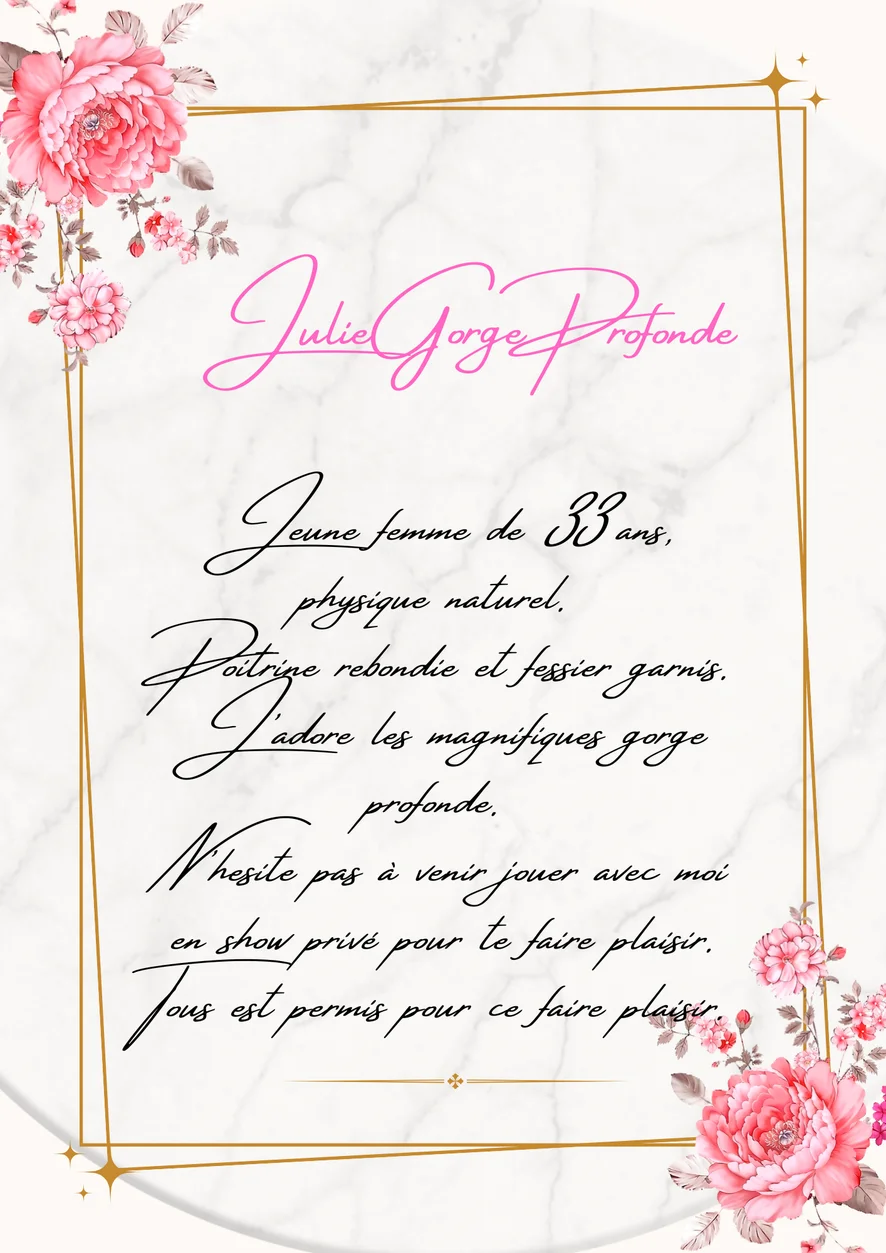 JulieGorgeProfonde
Jeune femme de 33 ans,
physique naturel.
Poitrine rebondie et fessier garnis.
J'adore les magnifiques gorge
profonde.
N'hesite pas à venir jouer avec moi
en show privé pour te faire plaisir.
Tous est permis pour ce faire plaisir.